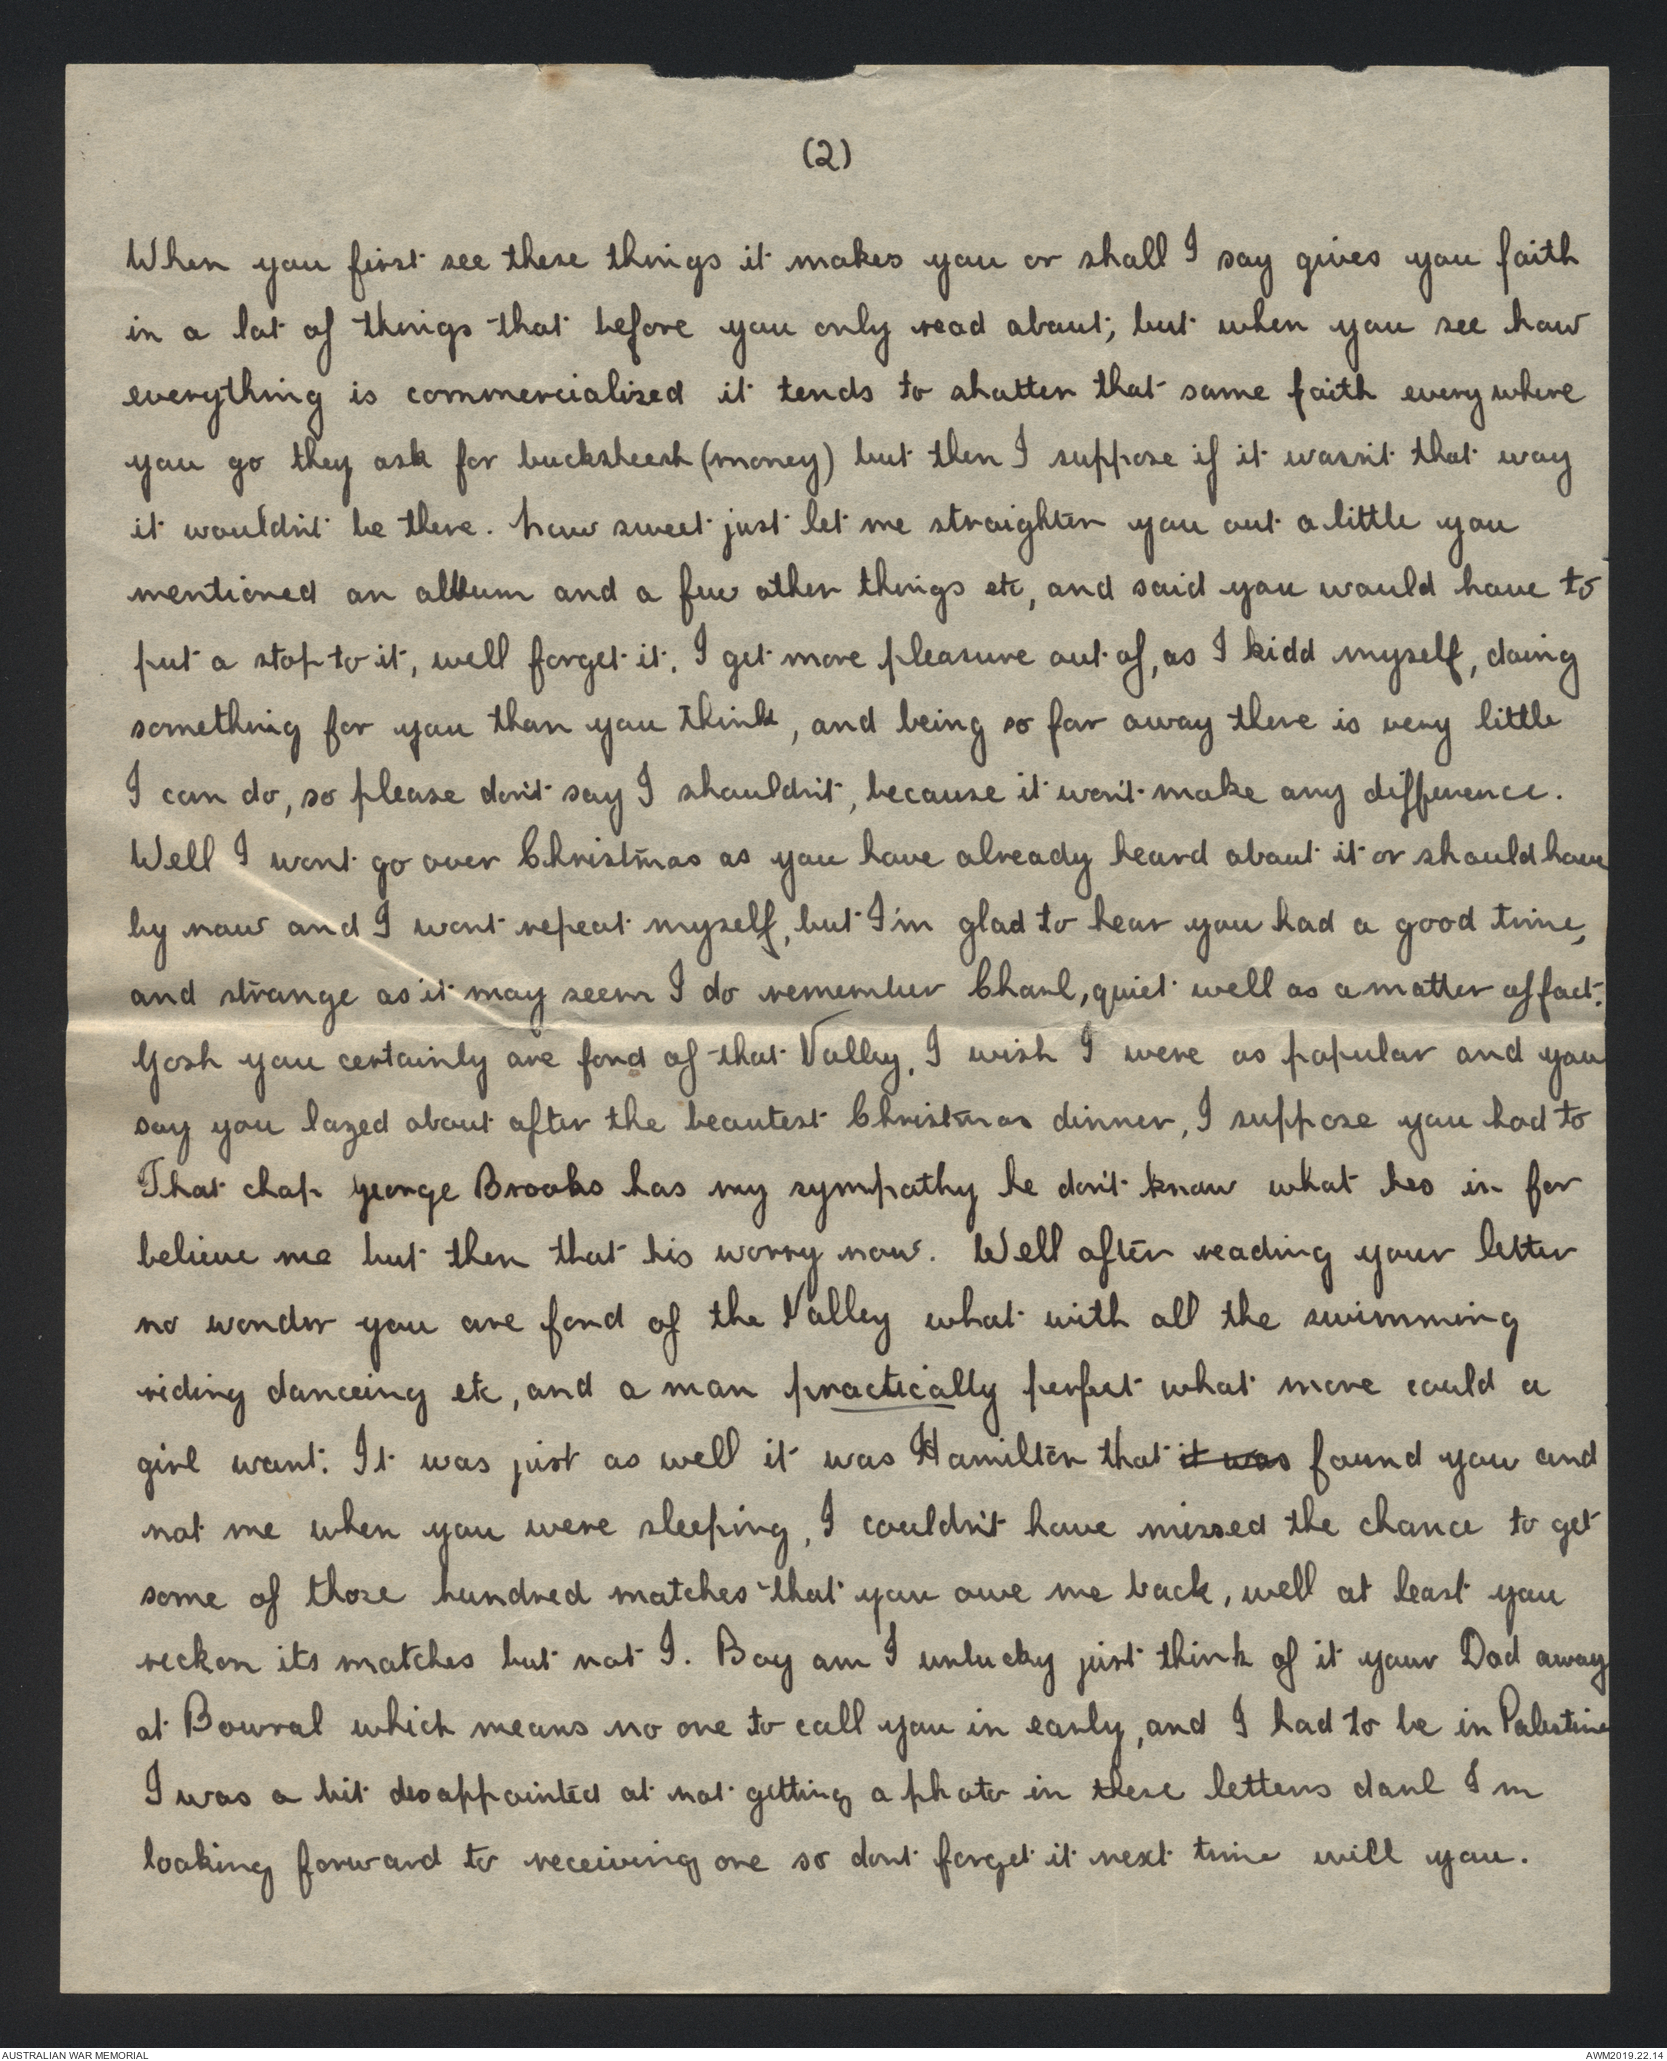 (2)
When you first see these things it makes you or shall I say gives you faith
in a lot of things that before you only read about, but when you see how
everything is commercialized it tends to shatter that same faith everywhere
you go they ask for bucksheesh (money) but then I suppose if it wasn't that way
it wouldn't be there. Now sweet just let me straighten you out a little you
mentioned an album and a few other things etc, and said you would have to
put a stop to it, well forget it. I get more pleasure out of, as I kidd myself, doing
something for you than you think, and being so far away there is very little
I can do, so please don't say I shouldn't, because it won't make any difference.
Well I wont go over Christmas as you have already heard about it or should have
by now and I wont repeat myself, but I'm glad to hear you had a good time,
and strange as it may seem I do remember Charl, quiet well as a matter of fact.
Gosh you certainly are fond of that Valley, I wish I were as popular and you
say you lazed about after the beautest Christmas dinner, I suppose you had to
That chap George Brooks has my sympathy he don't know what hes in for
believe me but then that his worry now. Well after reading your letter
no wonder you are fond of the Valley what with all the swimming
riding danceing etc, and a man practically perfect what more could a
girl want. It was just as well it was Hamilton that it was found you and
not me when you were sleeping, I couldn't have missed the chance to get
some of those hundred matches that you owe me back, well at least you
reckon its matches but not I. Boy am I unlucky just think of it your Dad away
at Bowral which means no one to call you in early, and I had to be in Palestine
I was a bit disappointed at not getting a photo in these letters darl I'm
looking forward to receiving one so dont forget it next time will you.
AUSTRALIAN WAR MEMORIAL
AWM2019.22.14